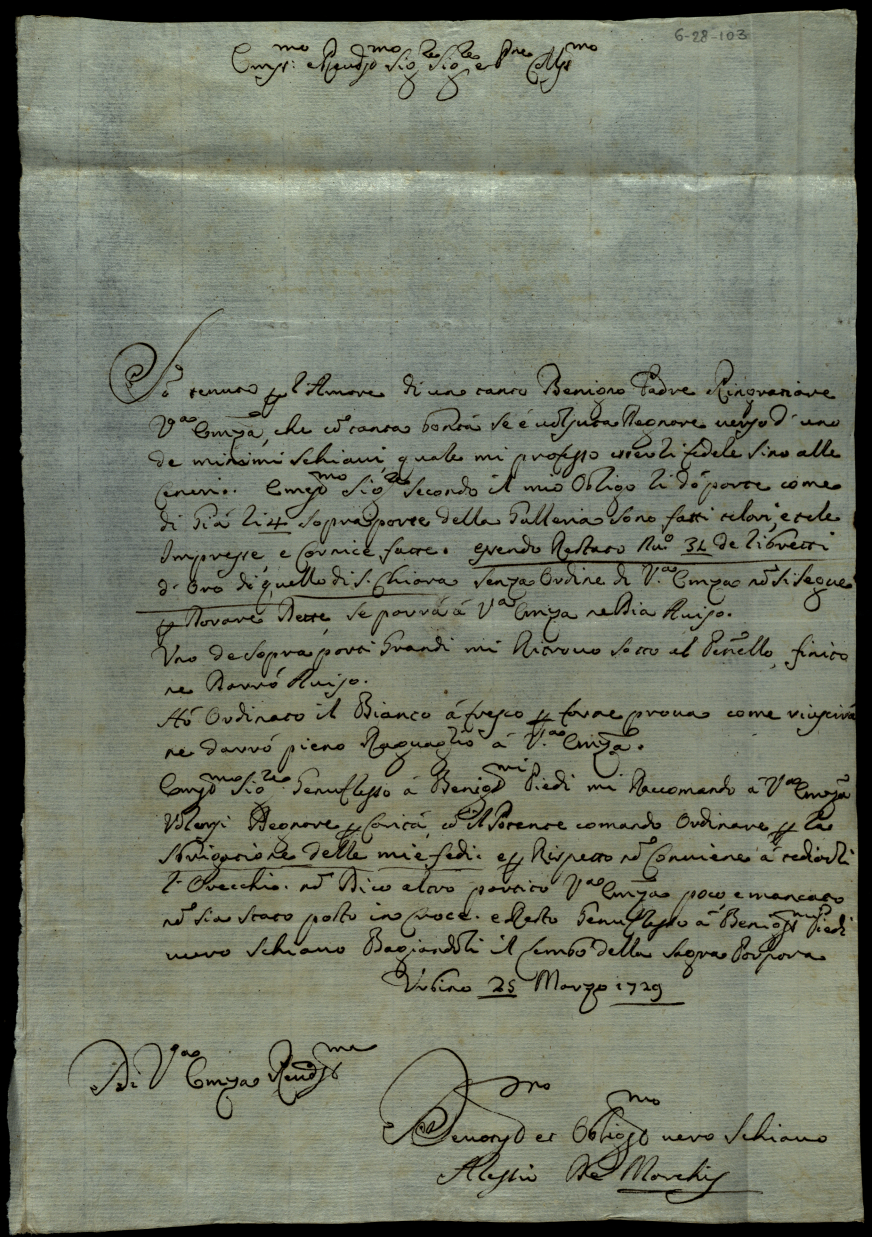 6-28-103
Em.mo e Rend.mo Sig.re Sig.re et P.ne Coll.mo
Sõ tenuto p l'Amore di uno tanto Benigno Padre Ringratiare
V.ra Emza, che cõ tanta bontà se è Regnare verso d'uno
de minimi Schiaui, quale mi professo esserli fedele sino alle
Cenerio. Em.mo Sig.re secondo il mio Obligo li dó parte come
di Già li 4 Sopra porte della Galleria Sono fatti
Impresse e Cornice fatte. essendo Restato Nu.o 31 de libretti
d'Oro di quello di S. Chiara senza Ordine di V.ra Emza nõ si segue
p se parrà à V.ra Emza ne Dia Auiso.
Vno de Sopra porti Grandi mi Ritrouo Sotto al Penello, finito
ne Darró Auiso.
Hó Ordinato il Bianco à fresco p farne proua come riuscirà
ne darró pieno Raguaglio à V.ra Emza.
Em.mo Sig.re Genuflesso à Benig.mi Piedi mi Raccomando à V.ra Emza
Volersi Degnare p Carità, cõ il Potente comando Ordinare p la
Spedigatione delle mie fedi. e p Rispetto nõ Conuiene à tediarli
l'Orecchio. nõ Dico altro V.ra Emza poco e mancato
nõ sia stato posto in Croce. e Resto Genuflesso à Benig.mi Piedi
uero Schiauo Bagiandoli il Lembo della Sagra Porpora
Vrbino 25 Marzo 1729
Di V.ra Emza Reud.ma
Deuotis.mo et Oblig.mo uero Schiauo
Alessio De Marchis